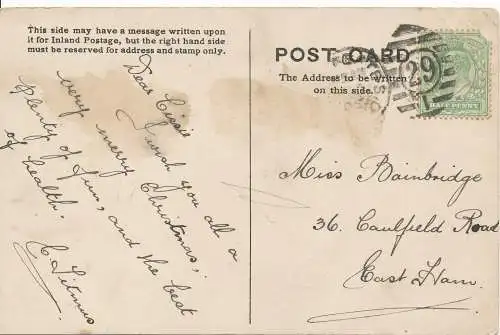 This side may have a message written upon
it for Inland Postage, but the right hand side
must be reserved for address and stamp only.
Dear Cissie
I wish you all a
very merry Christmas,
plenty of fun, and the best
of health.
C. Titmus
POST CARD.
The Address to be Written
on this side.
29
HALF PENNY
Miss Bainbridge
36. Caulfield Road
East Ham.